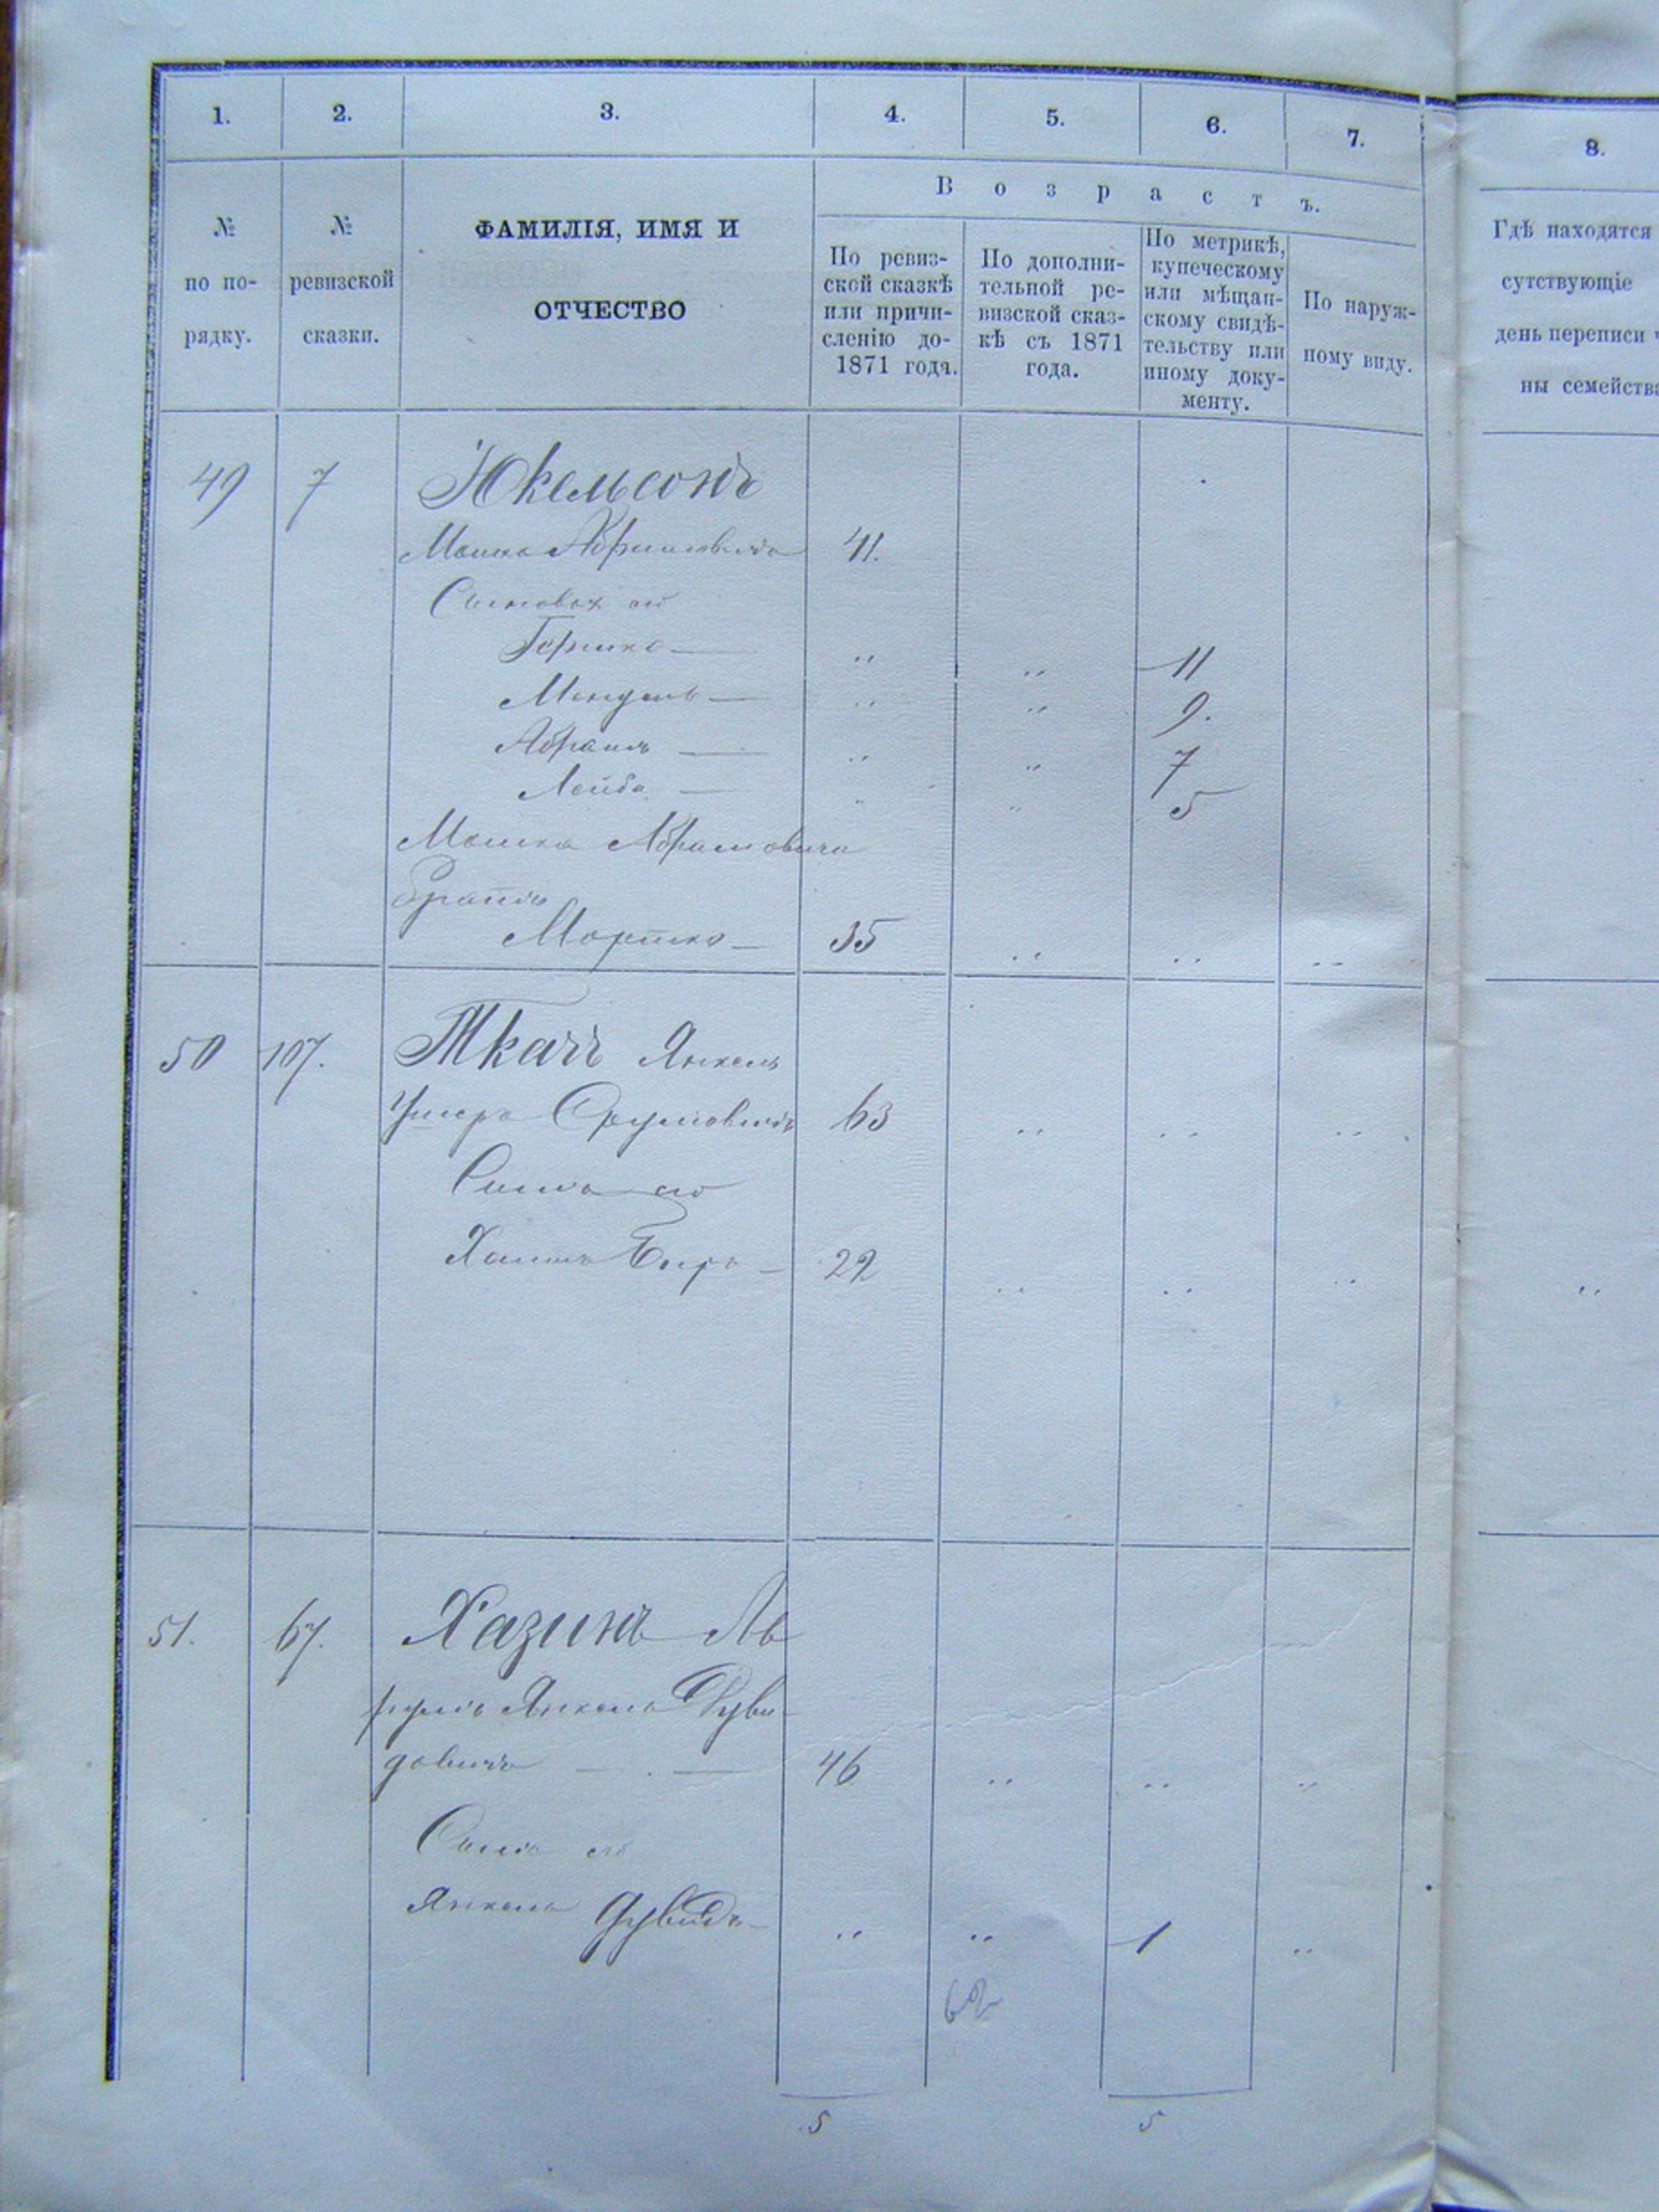 1. 2. 3. 4. 5. 6. 7. 8.
№ по по-рядку.
№ ревизской сказки.
ФАМИЛІЯ, ИМЯ И
ОТЧЕСТВО
Возрастъ.
По ревиз-
ской сказкѣ
или причи-
сленію до-
1871 года.
По дополни-
тельной ре-
визской сказ-
кѣ съ 1871
года.
По метрикѣ,
купеческому
или мѣщан-
скому свидѣ-
тельству или
иному доку-
менту.
По наруж-
ному виду.
Гдѣ находятся
сутствующіе
день переписи ч
ны семейства
49 7 Юкельсонъ
Мошка Абрамовичъ 41.
Сыновья его
Гершко — „ „ 11
Мендель — „ „ 9.
Абрамъ — „ „ 7
Лейба — „ „ 5
Мошка Абрамовича
братъ
Мортко — 35 „ „ „
50 107. Ткачъ Янкель
Умеръ Срулмовичъ 63 „ „ „
Сынъ его
Хаимъ Беръ — 22 „ „ „ „
51. 67. Хазинъ Аб
румъ Янкель Дуви-
довичъ — . — 46 „ „ „
Сынъ его
Янкель Дувидъ — „ „ 1 „
62
5 5